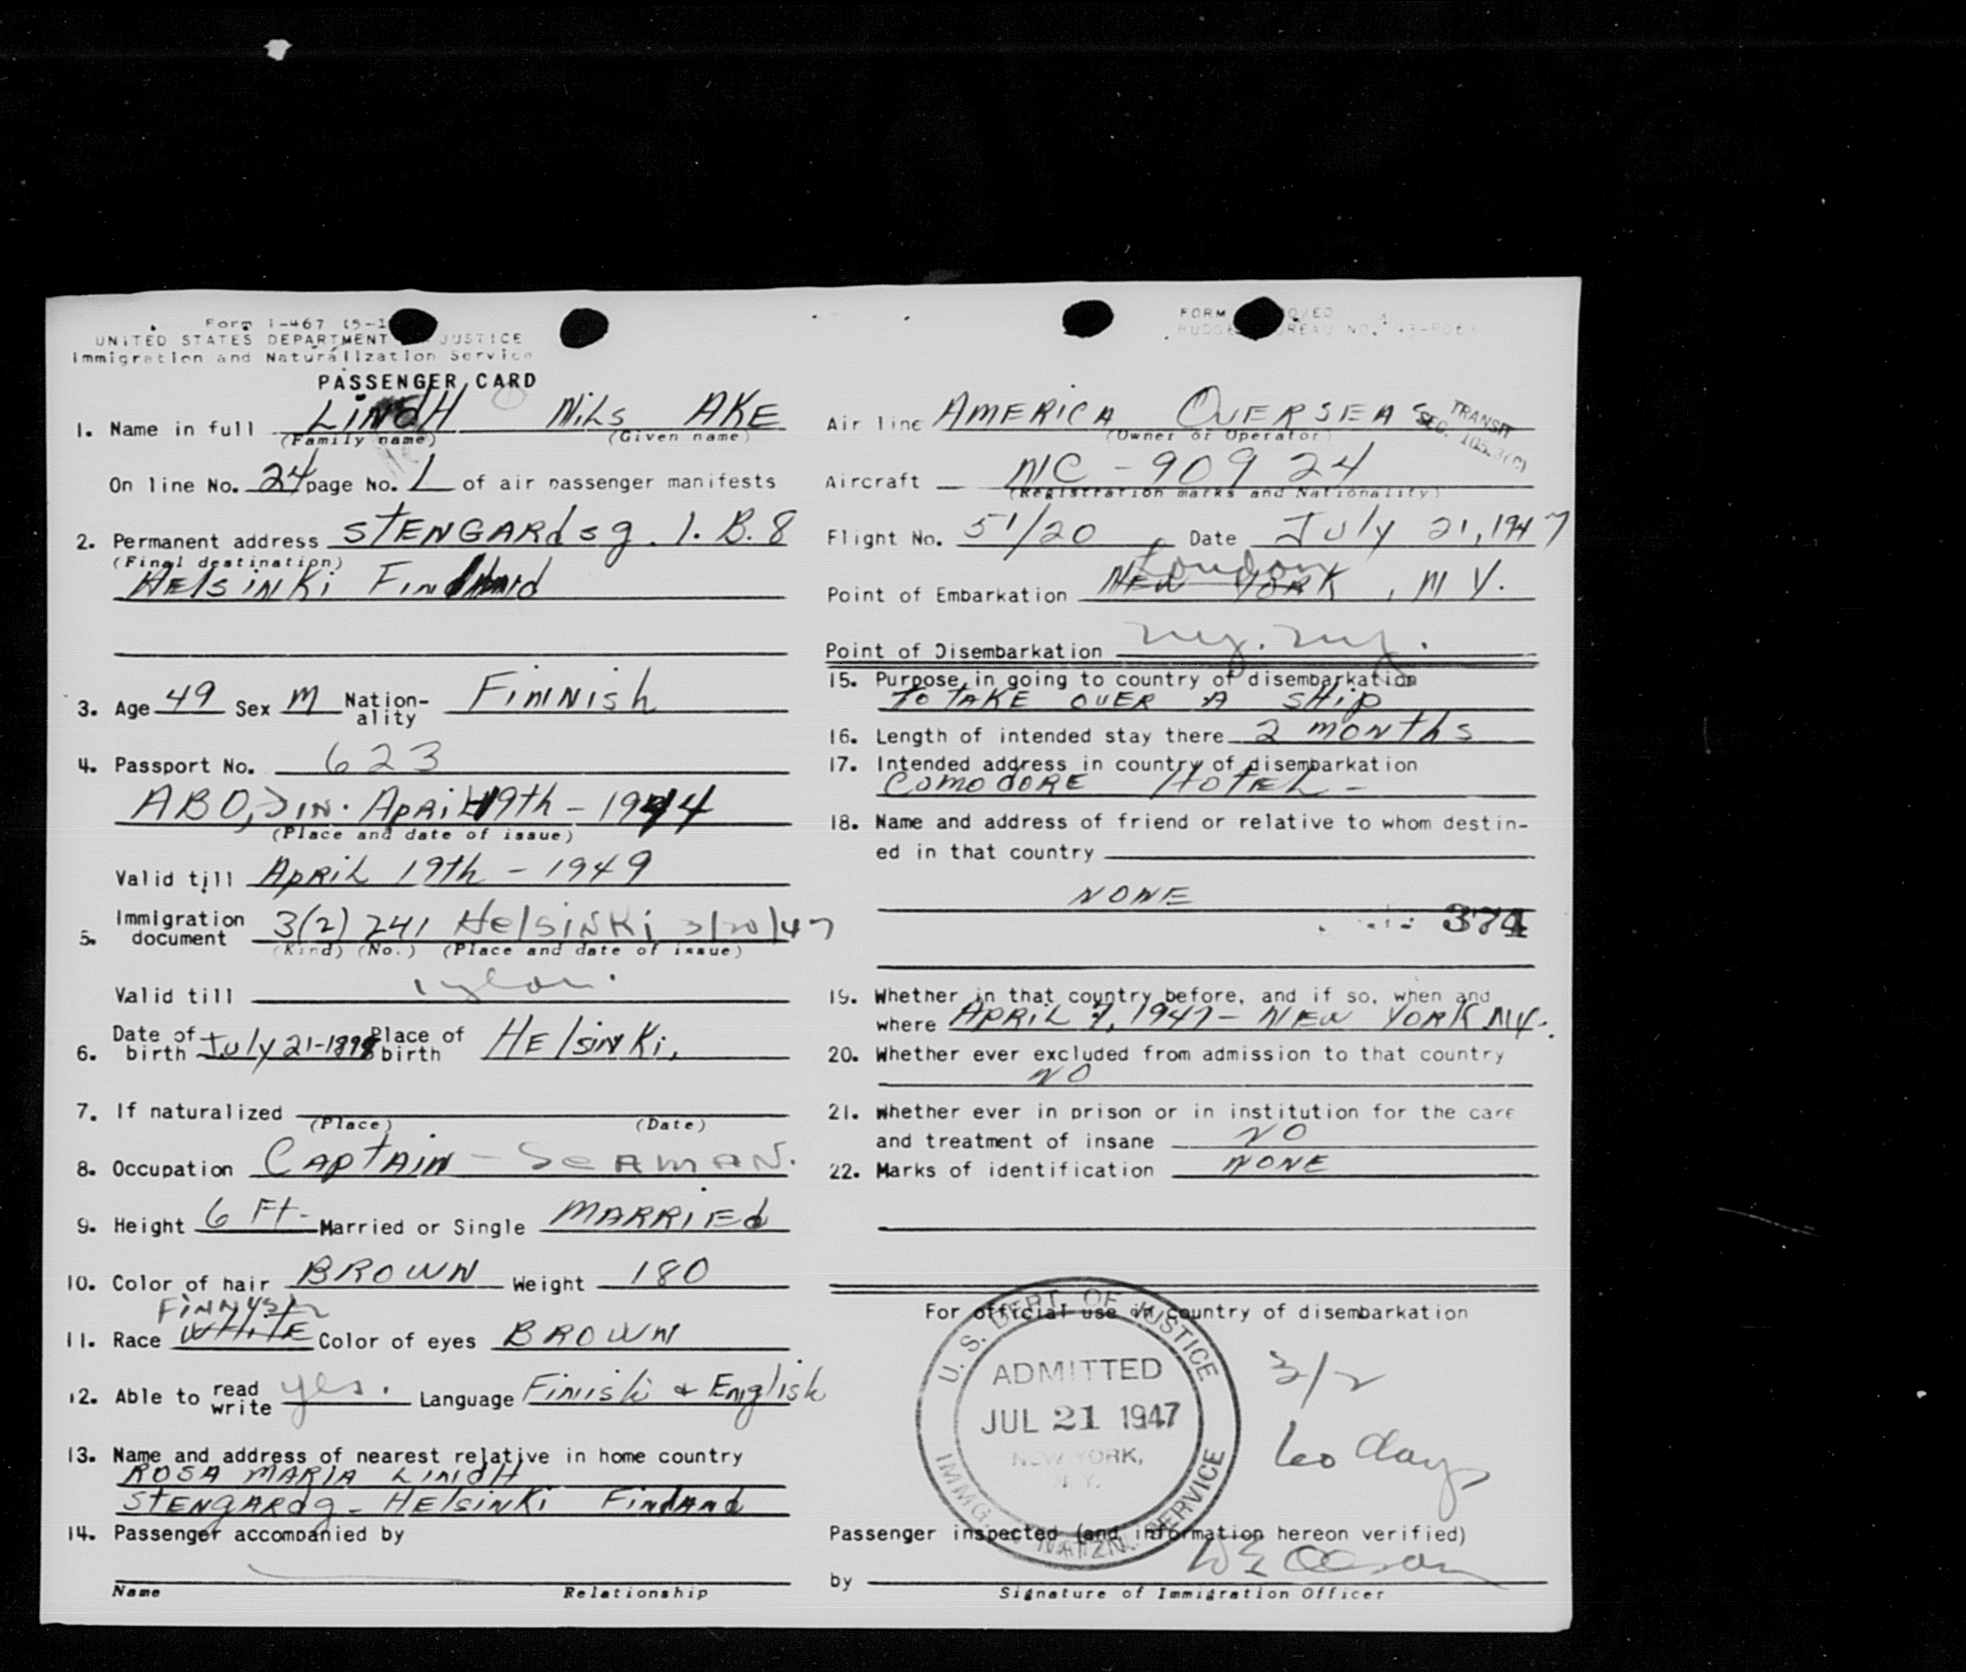 Form I-467
UNITED STATES DEPARTMENT JUSTICE
Immigration and Naturalization Service
PASSENGER CARD
1. Name in full LINDH NILS AKE
(Family name) (Given name)
On line No. 24 page No. 1 of air passenger manifests
2. Permanent address STENGARdsg. 1. B. 8
(Final destination)
HELSINKi FINLAND
3. Age 49 Sex M Nation-ality FINNISH
4. Passport No. 623
ABO, FIN. APRIL 19th - 1944
(Place and date of issue)
Valid till APRIL 19th - 1949
5. Immigration document 3(2) 241 HelsiNKi 3/20/47
(Kind) (No.) (Place and date of issue)
Valid till
6. Date of birth July 21-1898 Place of birth HElsiNKi,
7. If naturalized
(Place) (Date)
8. Occupation CAPTAIN - SEAMAN.
9. Height 6 Ft- Married or Single MARRIEd
10. Color of hair BROWN Weight 180
FINNISH
11. Race WHITE Color of eyes BROWN
12. Able to read write yes. Language Finish & English
13. Name and address of nearest relative in home country
ROSA MARIA LINdH
STENGARDg - HElsiNKi FINLANd
14. Passenger accompanied by
Name Relationship
FORM
BUREAU NO.
Air line AMERICA OVERSEAS
(Owner or Operator)
TRANSIT
SEC.
Aircraft NC - 90924
(Registration marks and Nationality)
Flight No. 51/20 Date July 21, 1947
London
Point of Embarkation NEW YORK, N Y.
Point of Disembarkation N.Y. N.Y.
15. Purpose in going to country of disembarkation
TO TAKE OVER A SHIP
16. Length of intended stay there 2 MONTHS
17. Intended address in country of disembarkation
COMODORE HOTEL -
18. Name and address of friend or relative to whom destin-
ed in that country
NONE
374
19. Whether in that country before, and if so, when and
where APRIL 7, 1947 - NEW YORK NY.
20. Whether ever excluded from admission to that country
NO
21. Whether ever in prison or in institution for the care
and treatment of insane NO
22. Marks of identification NONE
For official use in country of disembarkation
U. S. DEPT. OF JUSTICE
ADMITTED
JUL 21 1947
NEW YORK,
N.Y.
IMMG. NATZN. SERVICE
3/2
60 days
Passenger inspected (and information hereon verified)
by
Signature of Immigration Officer